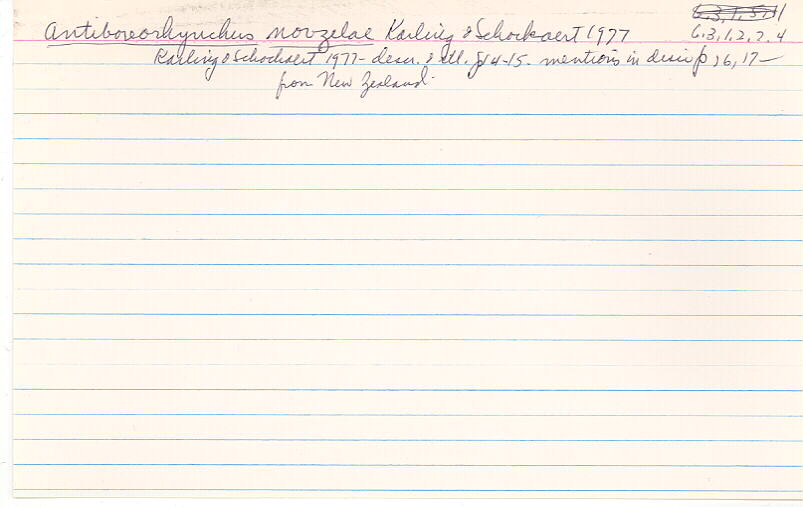 6,3,1,5,1
Antiboreorhynchus novzelae Karling & Schockaert 1977
6,3,1,2,2,4
Karling & Schockaert 1977 - descr. & ill. p14-15. mentions in desis p 16, 17 -
from New Zealand.